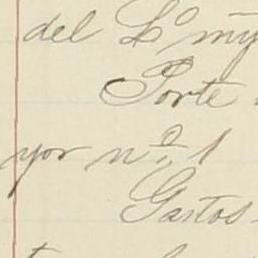 del Lº my
Porte
yor nº 1
Gastos